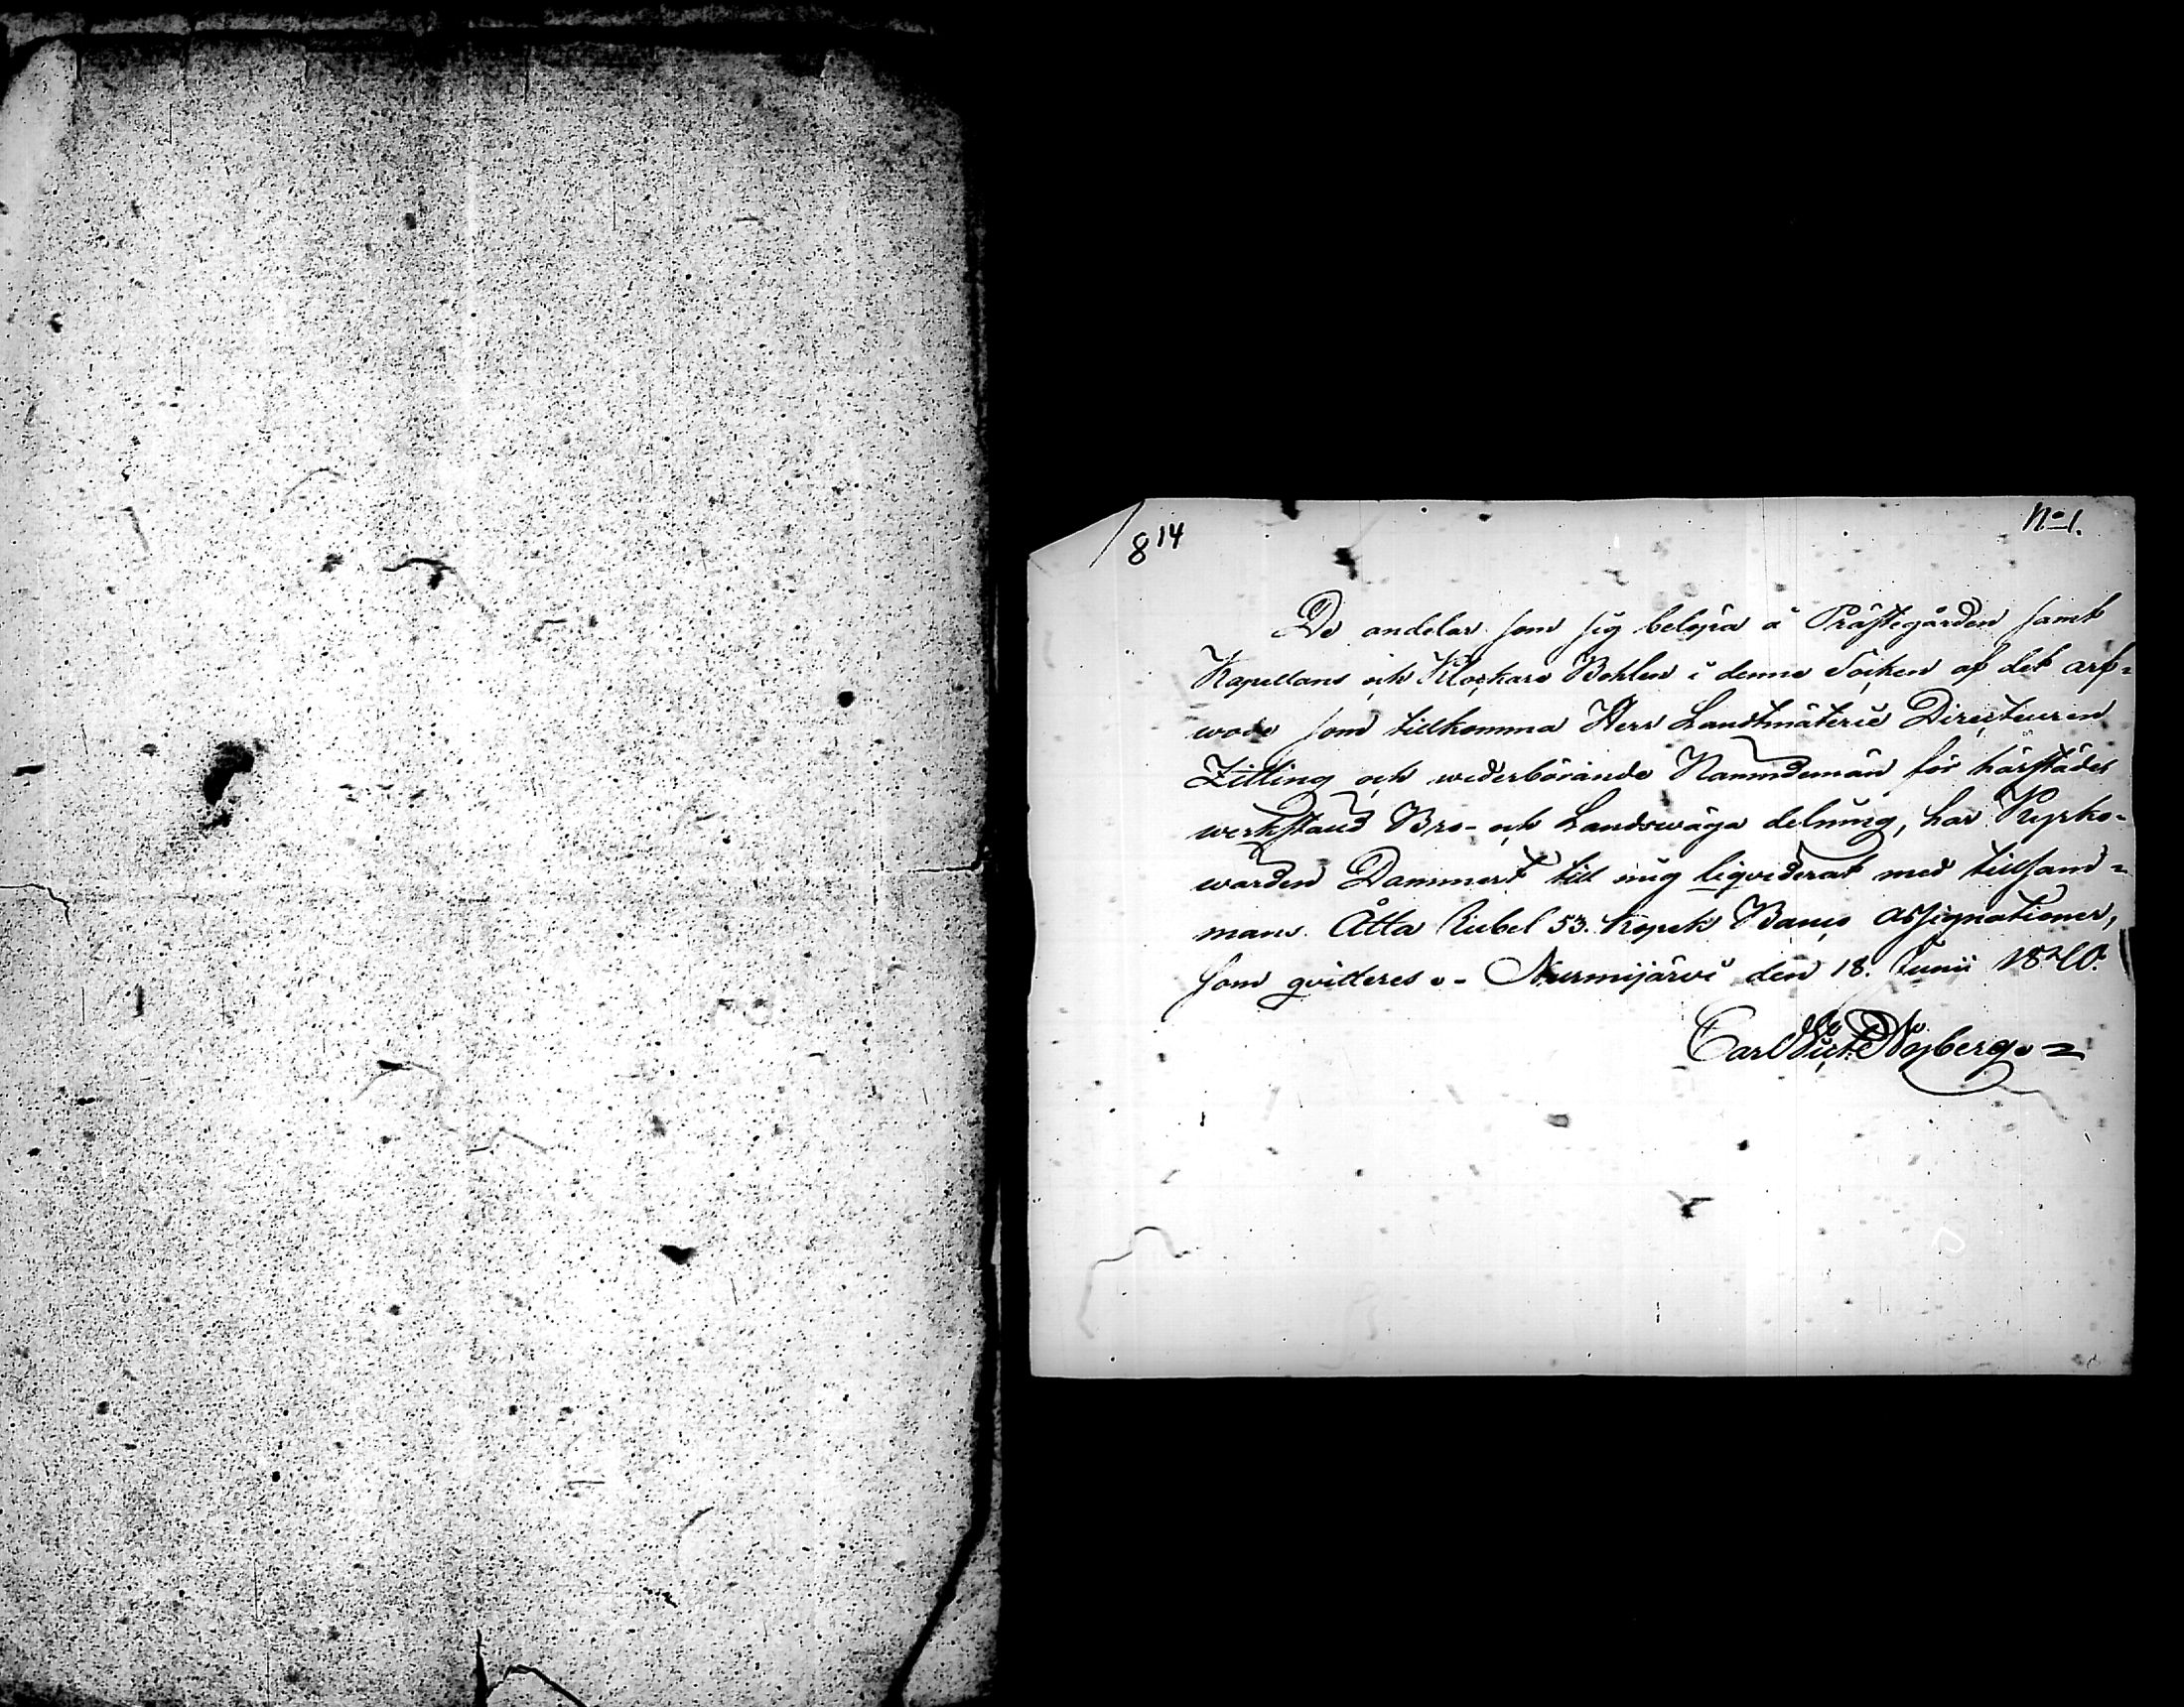 8 14
No 1.
De andelar som sig belöpa å Prästegården samt
Kapellans och Klockare Bohlen i denna Socken af det arf-
wode som tillkomma Herr Landtmäterie Directeuren
Zitting och wederbörande Nämndemän för härstädes
werkstäld Bro- och Landswäga delning, har Kyrko-
warden Dammert till mig liqviderat med tillsam-
mans Åtta Rubel 53. Kopek Banco Assignationer,
som qvitteres. Nurmijärvi den 18. Junii 1820.
Carl Nyberg